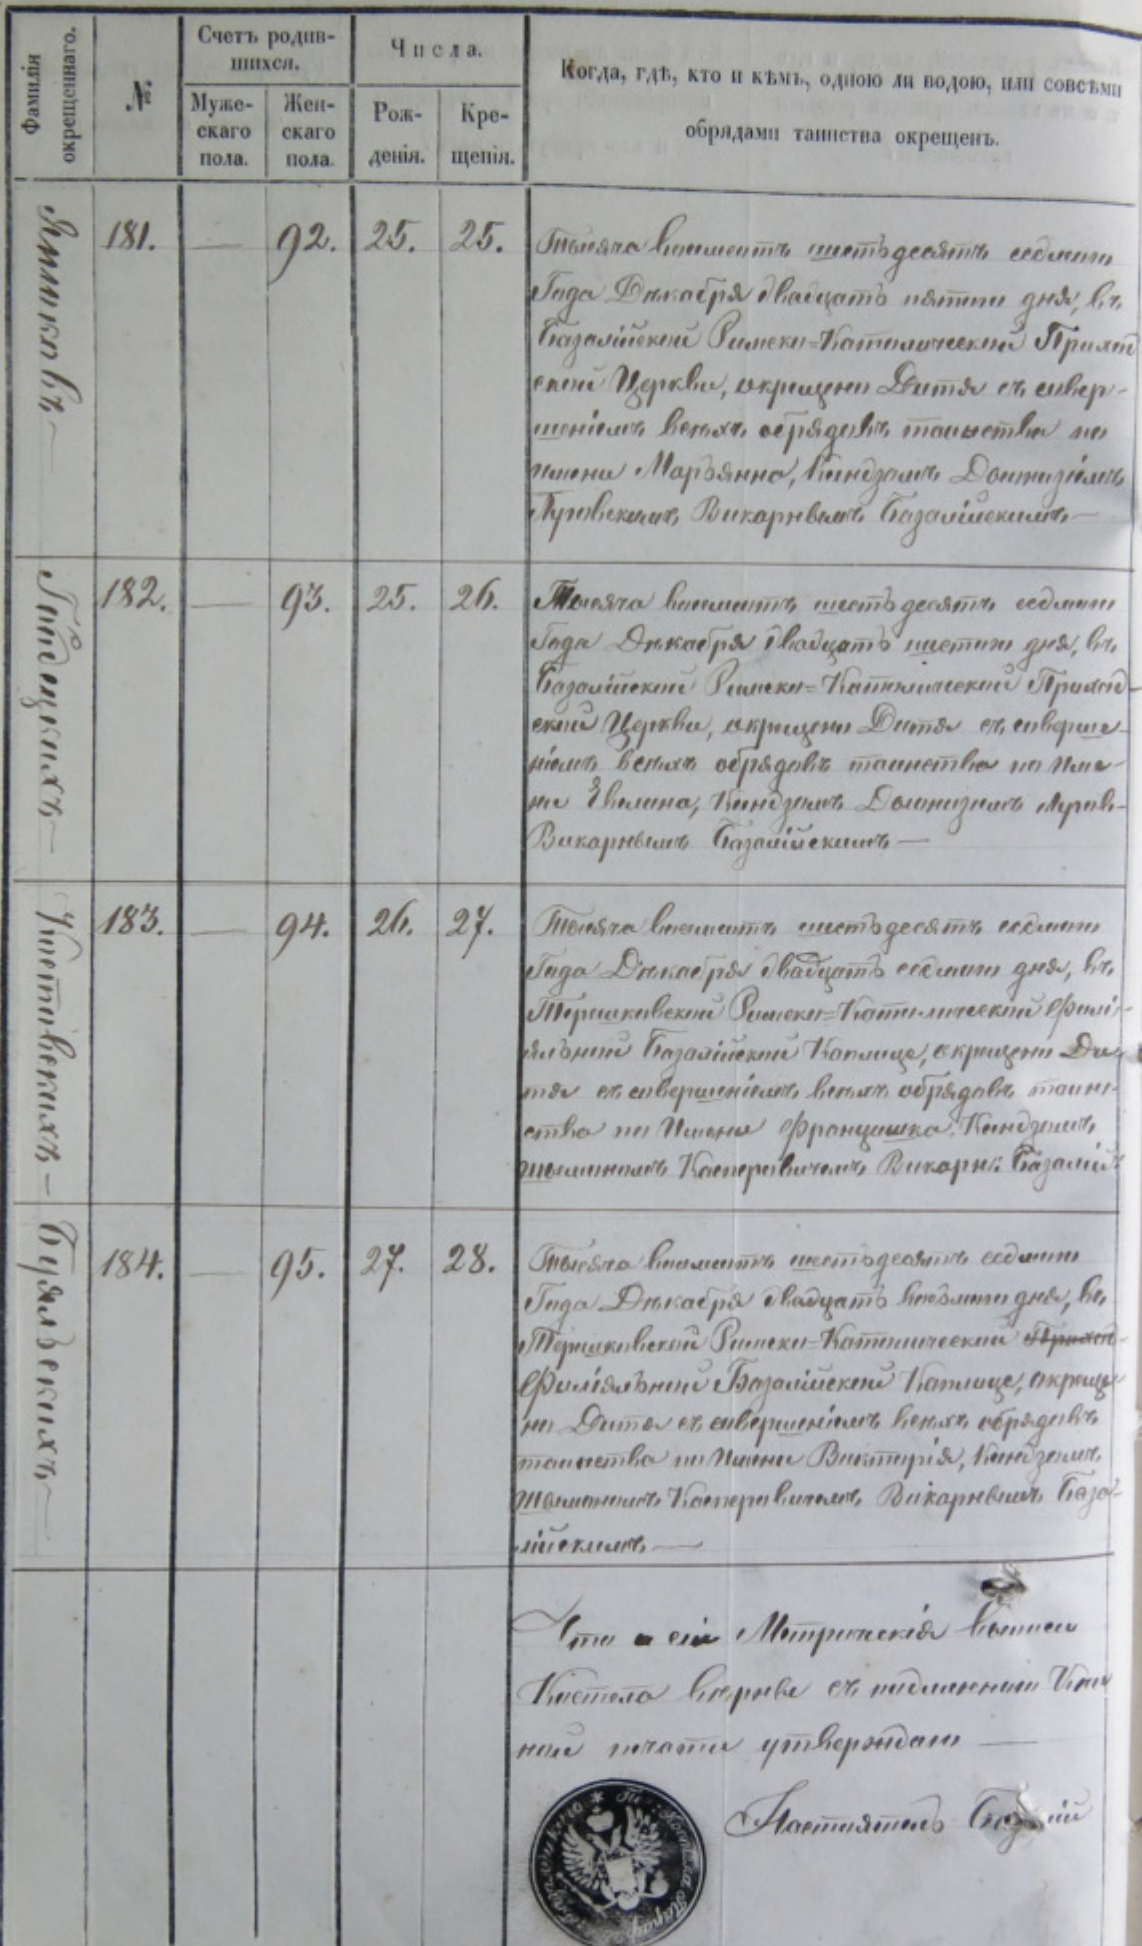 Фамилія окрещеннаго.
№
Счетъ родив-
шихся.
Муже-
скаго
пола.
Жен-
скаго
пола.
Числа.
Рож-
денія.
Кре-
щенія.
Когда, гдѣ, кто и кѣмъ, одною ли водою, или совсѣми
обрядами таинства окрещенъ.
181.
—
92.
25.
25.
Тысяча восмсотъ шестьдесятъ седмого
Года Декабря двадцать пятого дня, въ
Базалійской Римско=Католической Приход
ской Церкви, окрещено Дитя съ совер-
шеніемъ всѣхъ обрядовъ таинства по
имени Марьянна, Ксіондзомъ
Викарнымъ Базалійскимъ—
Гайдецкихъ—
182.
—
93.
25.
26.
Тысяча восмсотъ шестьдесятъ седмого
Года Декабря двадцать шестого дня, въ
Базалійской Римско=Католической Приход-
ской Церкви, окрещено Дитя съ соверше-
ніемъ всѣхъ обрядовъ таинства по Име-
ни Эвелина, Ксіондзомъ
Викарнымъ Базалійскимъ—
183.
—
94.
26.
27.
Тысяча восмсотъ шестьдесятъ седмого
Года Декабря двадцать седмого дня, въ
Терешковской Римско=Католической Филі-
яльной Базалійской Каплице, окрещено Ди-
тя съ совершеніемъ всѣхъ обрядовъ таин-
ства по Имени Францишка, Ксіондзомъ
Касперовичемъ Викарн: Базалій
184.
—
95.
27.
28.
Тысяча восмсотъ шестьдесятъ седмого
Года Декабря двадцать восьмого дня, въ
Терешковской Римско=Католической Приход-
Филіяльной Базалійской Каплице, окреще
но Дитя съ совершеніемъ всѣхъ обрядовъ
таинства по Имени Викторія, Ксіондзомъ
Касперовичемъ Викарнымъ База-
лійскимъ—
Что сіи Метрическія выписи
Костела вѣрны съ подлинною
ной печати утверждаю —
Настоятель